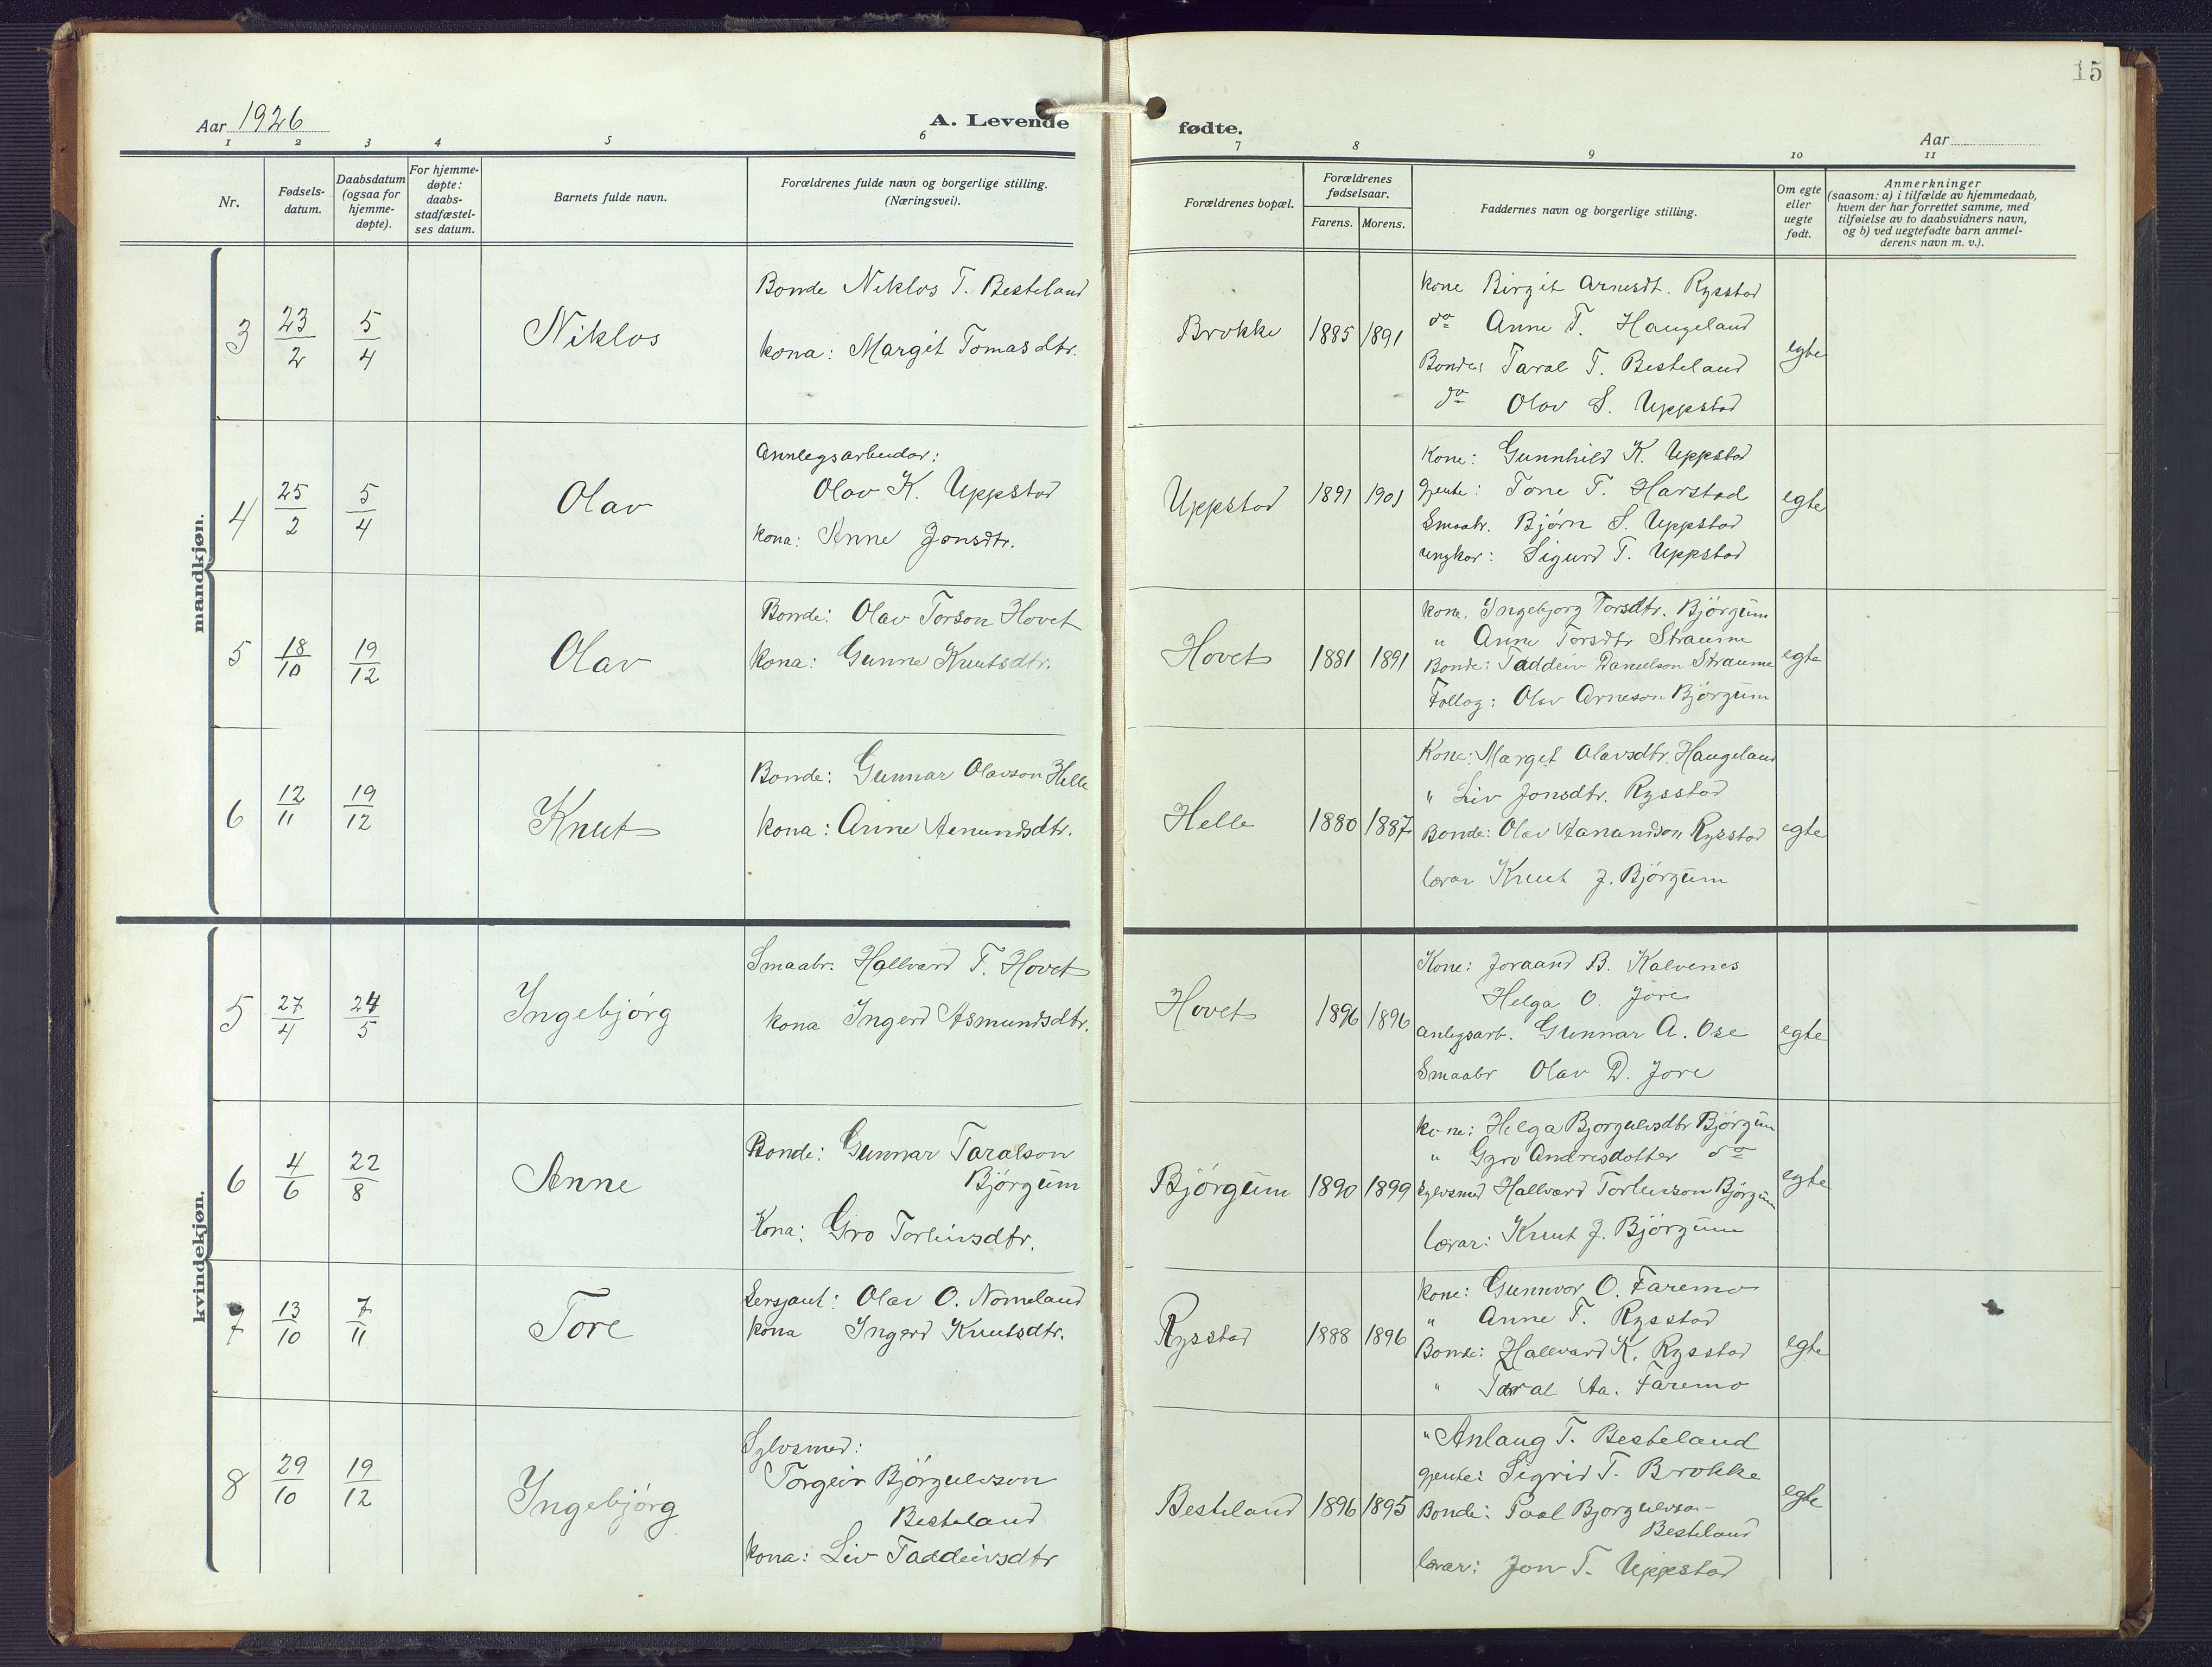 15
Aar 1926
A. Levende
fødte.
Aar
1 2 3 4 5 6 7 8 9 10 11
Nr.
Fødsels-
datum.
Daabsdatum
(ogsaa for
hjemme-
døpte).
For hjemme-
døpte:
daabs-
stadfæstel-
ses datum.
Barnets fulde navn.
Forældrenes fulde navn og borgerlige stilling.
(Næringsvei).
Forældrenes bopæl.
Forældrenes
fødselsaar.
Farens. Morens.
Faddernes navn og borgerlige stilling.
Om egte
eller
uegte
født.
Anmerkninger
(saasom: a) i tilfælde av hjemmedaab,
hvem der har forrettet samme, med
tilføielse av to daabsvidners navn,
og b) ved uegtefødte barn anmel-
derens navn m. v.).
mandkjøn.
3 23/2 5/4 Niklos
Bonde Niklos T. Besteland
kona: Margit Tomasdtr.
Brokke 1885 1891
kone Birgit Arnesdt. Rysstad
do Anne T. Haugeland
Bonde: Taral T. Besteland
do Olav S. Uppstad
egte
4 25/2 5/4 Olav
Annlegsarbeidar:
Olav K. Uppstad
kona: Anne Jonsdtr.
Uppstad 1891 1901
Kone: Gunnhild K. Uppstad
Gjente: Tone T. Harstad
Smaabr. Bjørn S. Uppstad
ungkar: Sigurd T. Uppstad
egte
5 18/10 19/12 Olav
Bonde: Olav Torson Hovet
kona: Gunne Knutsdtr.
Hovet 1881 1891
kone. Ingebjorg Torsdtr. Bjørgum
" Anne Torsdtr Straume
Bonde: Taddeiv Danielson Straume
Follog: Olav Arneson Bjørgum
egte
6 12/11 19/12 Knut
Bonde: Gunnar Olavson Helle
kona: Anne Amundsdtr.
Helle 1880 1887
Kone: Marget Olavsdtr. Haugeland
" Liv Jonsdtr. Rysstad
Bonde: Olav Aanundson Rysstad
lærar Knut J. Bjørgum
egte
kvindekjøn.
5 27/4 24/5 Ingebjørg
Smaabr. Hallvard T. Hovet
kona Ingerd Asmundsdtr.
Hovet 1896 1896
Kone: Joraand B. Kalvenes
Helga O. Jore
anlegsarb. Gunnar A. Ose
Smaabr Olav D. Jore
egte
6 4/6 22/8 Anne
Bonde: Gunnar Taralson
Bjørgum
Kona: Gro Torleivsdtr.
Bjørgum 1890 1899
kone: Helga Bjorgulvsdtr Bjørgum
" Gyro Andresdotter do
Sylvsmed Hallvard Torleivson Bjørgum
lærar: Knut J. Bjørgum
egte
7 13/10 7/11 Tore
Sersjant: Olav O. Nomeland
kona Ingerd Knutsdtr.
Rysstad 1888 1896
kone: Gunnvor O. Faremo
" Anne T. Rysstad
Bonde: Hallvard K. Rysstad
" Taral Aa. Faremo
egte
8 29/10 19/12 Ingebjørg
Sylvsmed:
Torgeir Bjørgulvson
Besteland
kona: Liv Taddeivsdtr
Besteland 1896 1895
" Anlaug T. Besteland
gjente: Sigrid T. Brokke
Bonde: Paal Bjorgulvson
Besteland
lærar: Jon T. Uppstad
egte